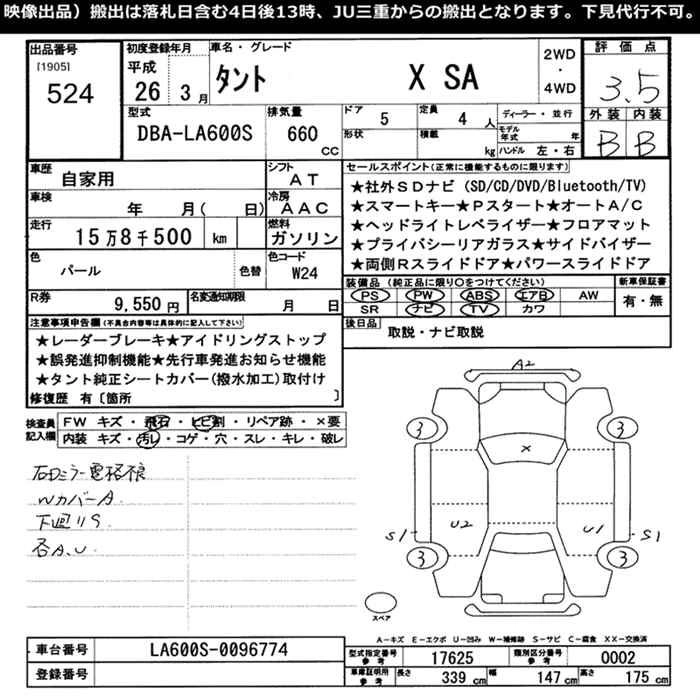 映像出品）搬出は落札日含む4日後13時、JU三重からの搬出となります。下見代行不可。
出品番号
[1905]
524
初度登録年月
平成
26 3月
車名・グレード
タント X SA
2WD
・
4WD
評価点
3.5
外装 内装
B B
型式
DBA-LA600S
排気量
660
CC
ドア 5
形状
定員 4 人
積載 kg
ディーラー・並行
モデル年式 年
ハンドル 左・右
車歴
自家用
シフト
AT
車検
年 月( 日)
冷房
AAC
走行
15万8千500 km
燃料
ガソリン
色
パール
色替
色コード
W24
R券
9,550円
名変通知期限
月 日
セールスポイント(正常に機能するものに限ります)
★社外SDナビ(SD/CD/DVD/Bluetooth/TV)
★スマートキー★Pスタート★オートA/C
★ヘッドライトレベライザー★フロアマット
★プライバシーリアガラス★サイドバイザー
★両側Rスライドドア★パワースライドドア
装備品(純正品に限り○をつけてください)
PS PW ABS エアB AW
SR ナビ TV カワ
新車保証書
有・無
後日品
取説・ナビ取説
注意事項申告欄(不具合内容等は具体的に記入して下さい)
★レーダーブレーキ★アイドリングストップ
★誤発進抑制機能★先行車発進お知らせ機能
★タント純正シートカバー(撥水加工)取付け
修復歴 有〔箇所 〕
検査員
記入欄
FW キズ・飛石・ヒビ割・リペア跡・×要
内装 キズ・汚レ・コゲ・穴・スレ・キレ・破レ
右Dミラー電格不良
WカバーA
下廻りS
各A.U
A2
3
3
X
S1
U2
U1
S1
3
3
スペア
A-キズ E-エクボ U-凹み W-補修跡 S-サビ C-腐食 XX-交換済
車台番号
LA600S-0096774
登録番号
型式指定番号
参考
17625
類別区分番号
参考
0002
車庫証明用
参考
長さ 339 cm
幅 147 cm
高さ 175 cm